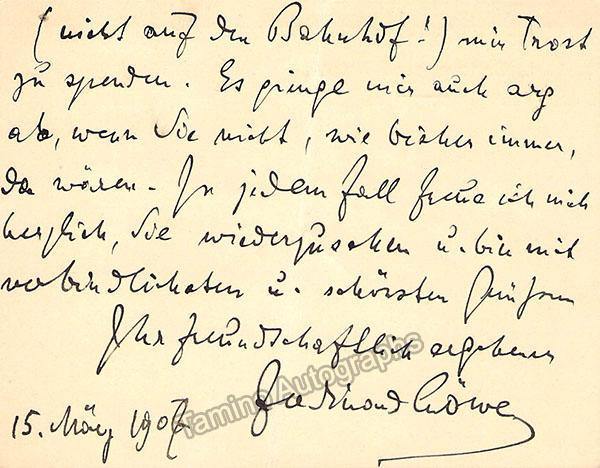 (nicht auf den Bahnhof!) mir Trost
zu spenden. Es ginge mir auch arg
ab, wenn Sie nicht, wie bisher immer,
da wären. In jedem Fall freue ich mich
herzlich, Sie wiederzusehen u. bin mit
verbindlichsten u. schönsten Grüßen
Ihr freundschaftlich ergebener
Ferdinand Löwe
15. März 190
Tamino Autographs